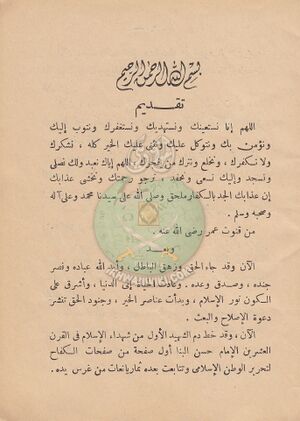 بسم الله الرحمن الرحيم
تقديم
اللهم إنا نستعينك ونستهديك ونستغفرك ونتوب إليك
ونؤمن بك ونتوكل عليك ونثنى عليك الخير كله ، نشكرك
ولا نكفرك ، ونخلع ونترك من يفجرك . اللهم إياك نعبد ولك نصلى
ونسجد وإليك نسعى ونحفد ، نرجو رحمتك ونخشى عذابك
إن عذابك الجد بالكفار ملحق وصلى الله على سيدنا محمد وعلى آله
وصحبه وسلم .
من قنوت عمر رضى الله عنه .
وبعد
الآن وقد جاء الحق وزهق الباطل ، وأعز الله عباده ونصر
جنده ، وصدق وعده . وعادت الحياة إلى الدنيا ، وأشرق على
السكون نور الإسلام ، وبدأت عناصر الخير ، وجنود الحق تنشر
دعوة الإصلاح والبعث .
الآن ، وقد خط دم الشهيد الأول من شهداء الإسلام فى القرن
العشرين الإمام حسن البنا أول صفحة من صفحات الكفاح
لتحرير الوطن الإسلامى وتتابعت بعده ثمار يانعات من غرس يده .
IKHWANWIKI.COM